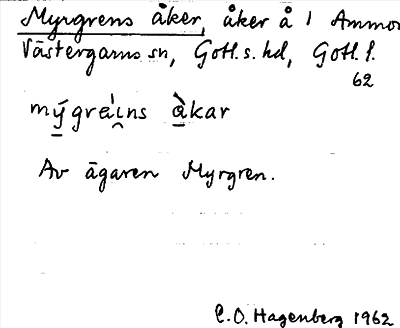 Myrgrens åker, åker å 1 Ammor
Västergarns sn, Gotl. s. hd, Gotl. l.
62
mý̱greí̯ns à̱kar
Av ägaren Myrgren.
C.O. Hagenberg 1962